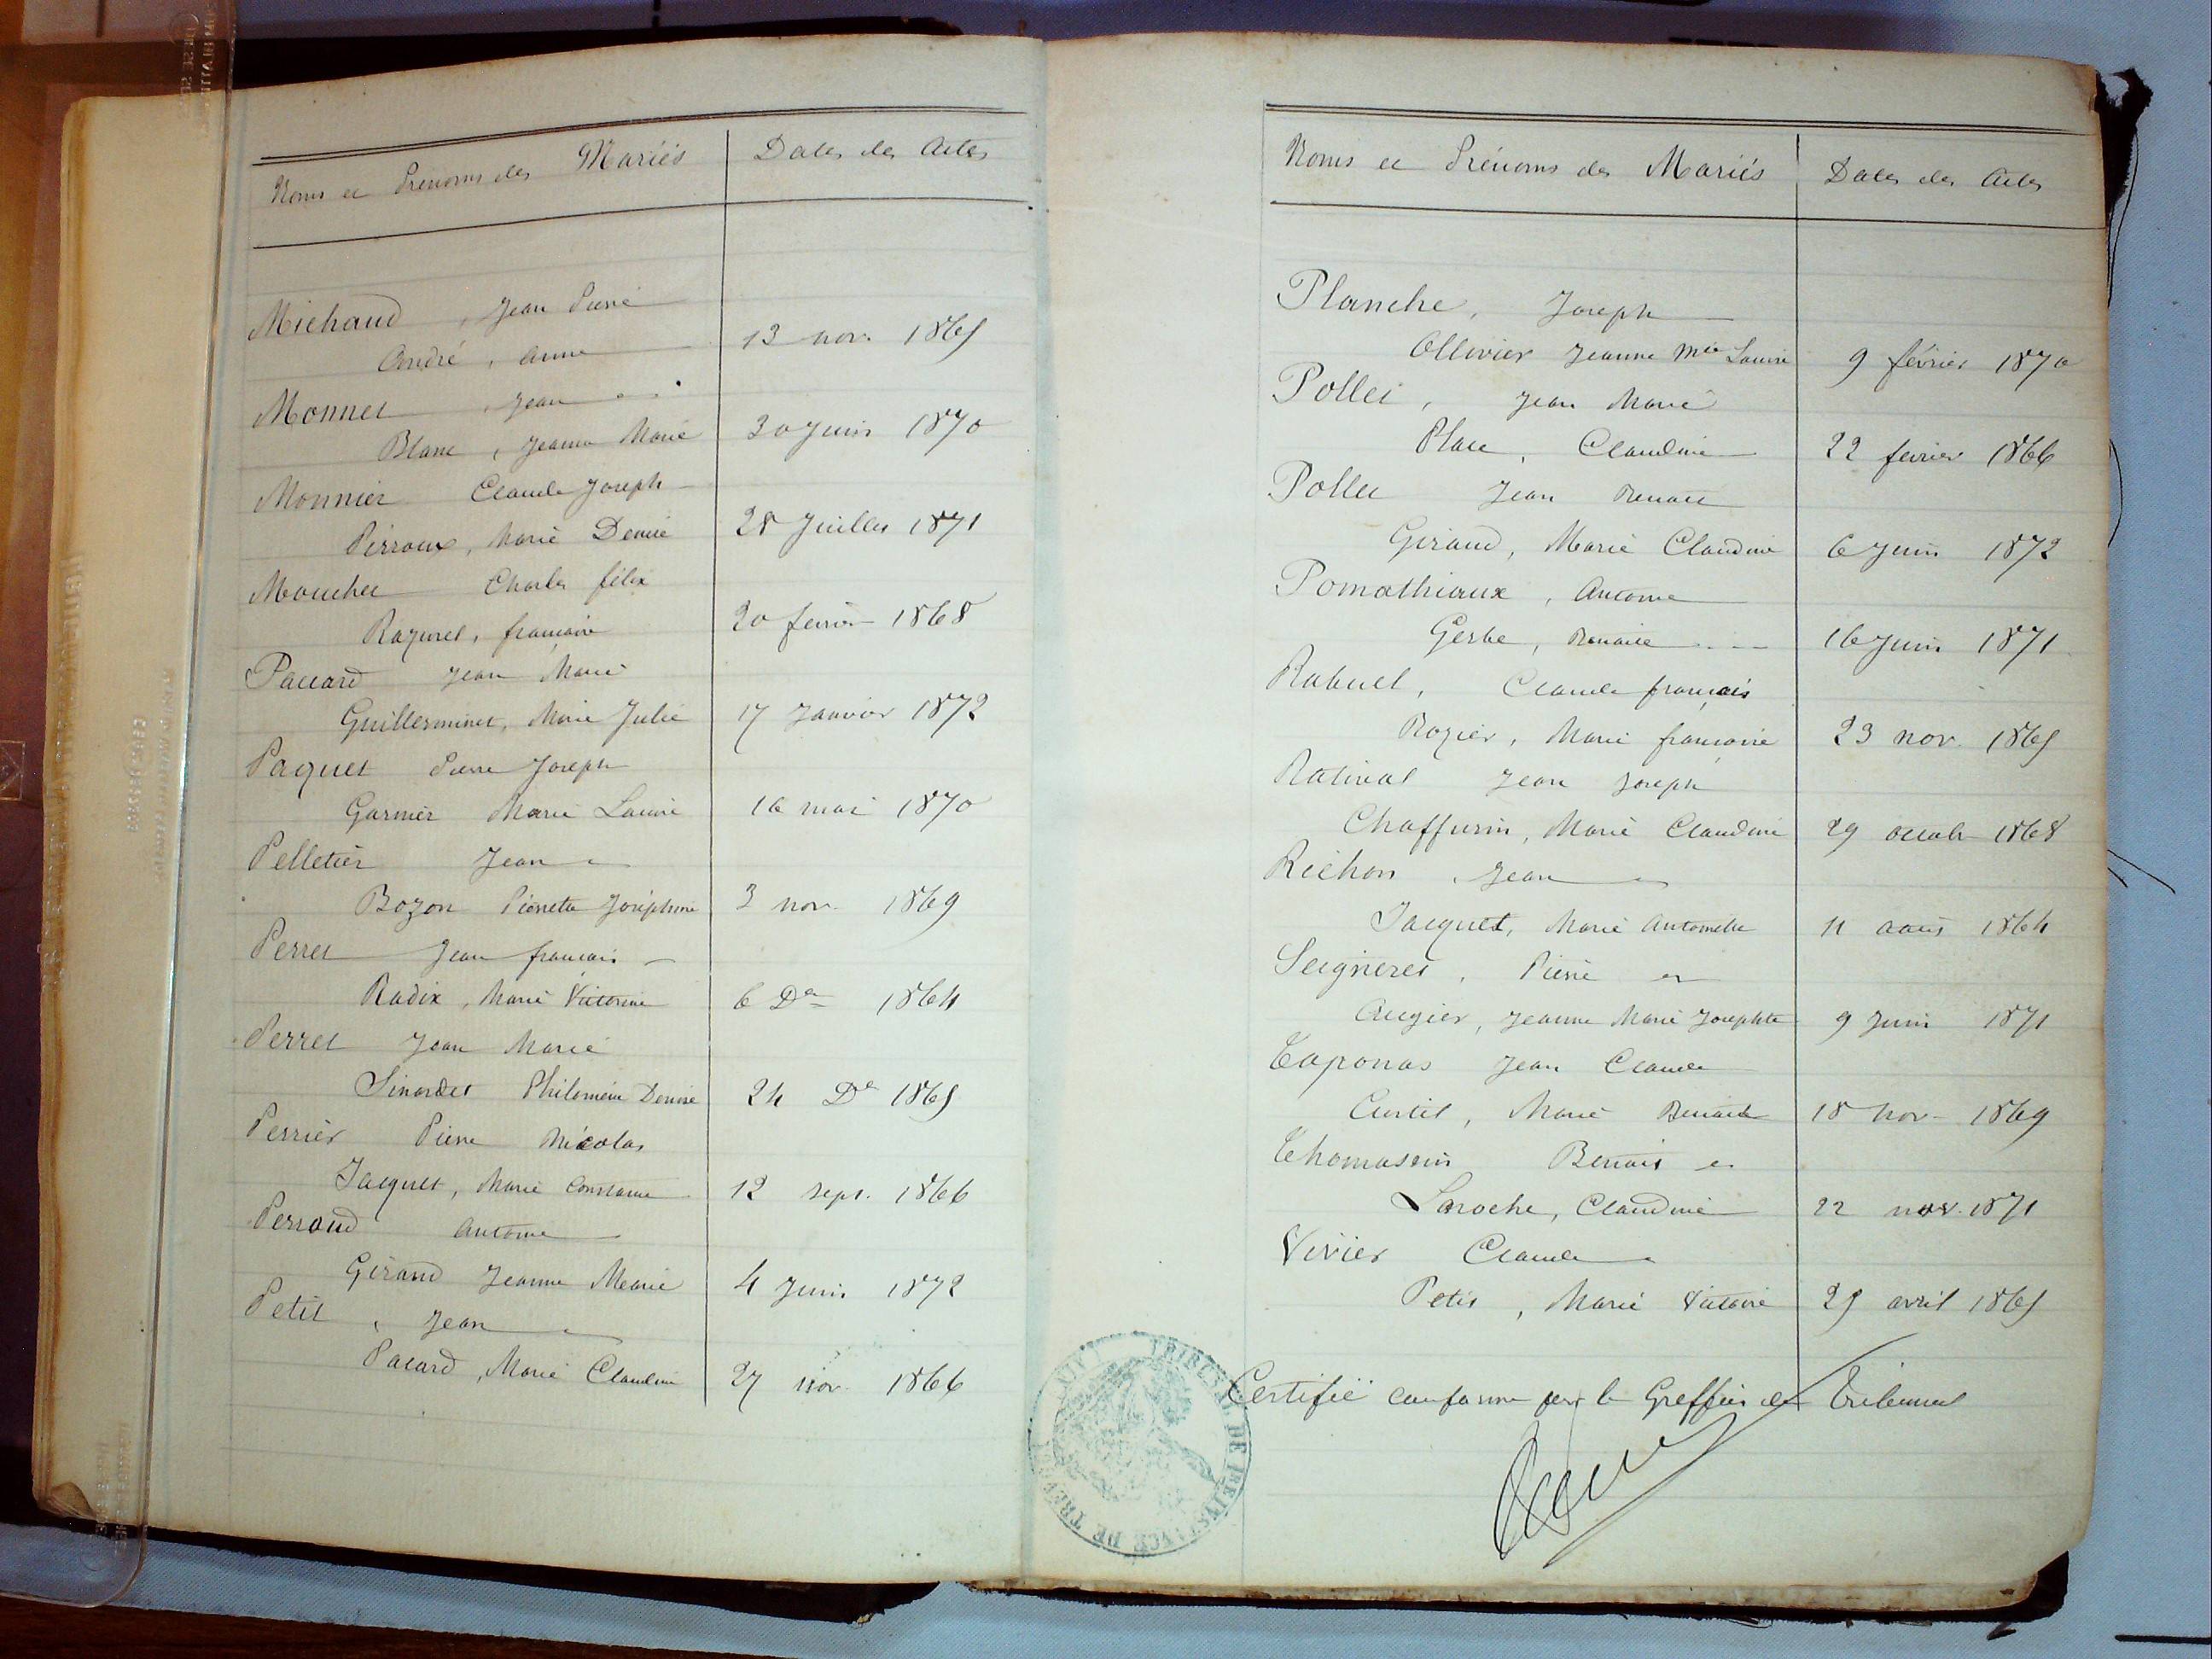 Noms et Prénoms des Mariés Dates des Actes
Michaud, Jean Pierre
André, Anne 13 nov. 1865
Monnet, Jean
Blanc, Jeanne Marie 30 Juin 1870
Monnier Claude Joseph
Perroux, Marie Denise 28 Juillet 1871
Mouchet Charles félix
Razurel, françoise 20 fevrier 1868
Paccard Jean Marie
Guillerminet, Marie Julie 17 Janvier 1872
Paquet Pierre Joseph
Garnier Marie Louise 16 mai 1870
Pelletier Jean
Bozon Pierrette Joséphine 3 nov. 1869
Perret Jean francois
Radix, Marie Victorine 6 De 1864
Perret Jean Marie
Sinardet Philomène Denise 24 De 1865
Perrier Pierre Nicolas
Jacquet, Marie Constance 12 sept. 1866
Perraud Antoine
Girand Jeanne Marie 4 Juin 1872
Petit, Jean
Pacard, Marie Claudine 27 nov. 1866
Noms et Prénoms des Mariés Dates des Actes
Planche, Joseph
Ollivier Jeanne Mie Louise 9 février 1870
Pollet, Jean Marie
Place, Claudine 22 fevrier 1866
Pollet Jean Benoit
Giraud, Marie Claudine 6 Juin 1872
Pomathiaux, Antoine
Gerbe, Benoite 16 Juin 1871
Rabuel, Claude français
Rozier, Marie françoise 23 nov. 1865
Rativat Jean Joseph
Chaffurin, Marie Claudine 29 octob 1868
Richon, Jean
Jacquet, Marie Antoinette 11 aout 1864
Seigneret, Pierre
Augier, Jeanne Marie Josephte 9 Juin 1871
Taponas Jean Claude
Curtil, Marie Benoite 18 nov. 1869
Thomassin Benoit
Laroche, Claudine 22 nov. 1871
Vivier Claude
Petit, Marie Victoire 25 avril 1865
Certifié conforme par le Greffier du Tribunal
TRIBUNAL DE 1ERE INSTANCE DE TREVOUX (AIN)